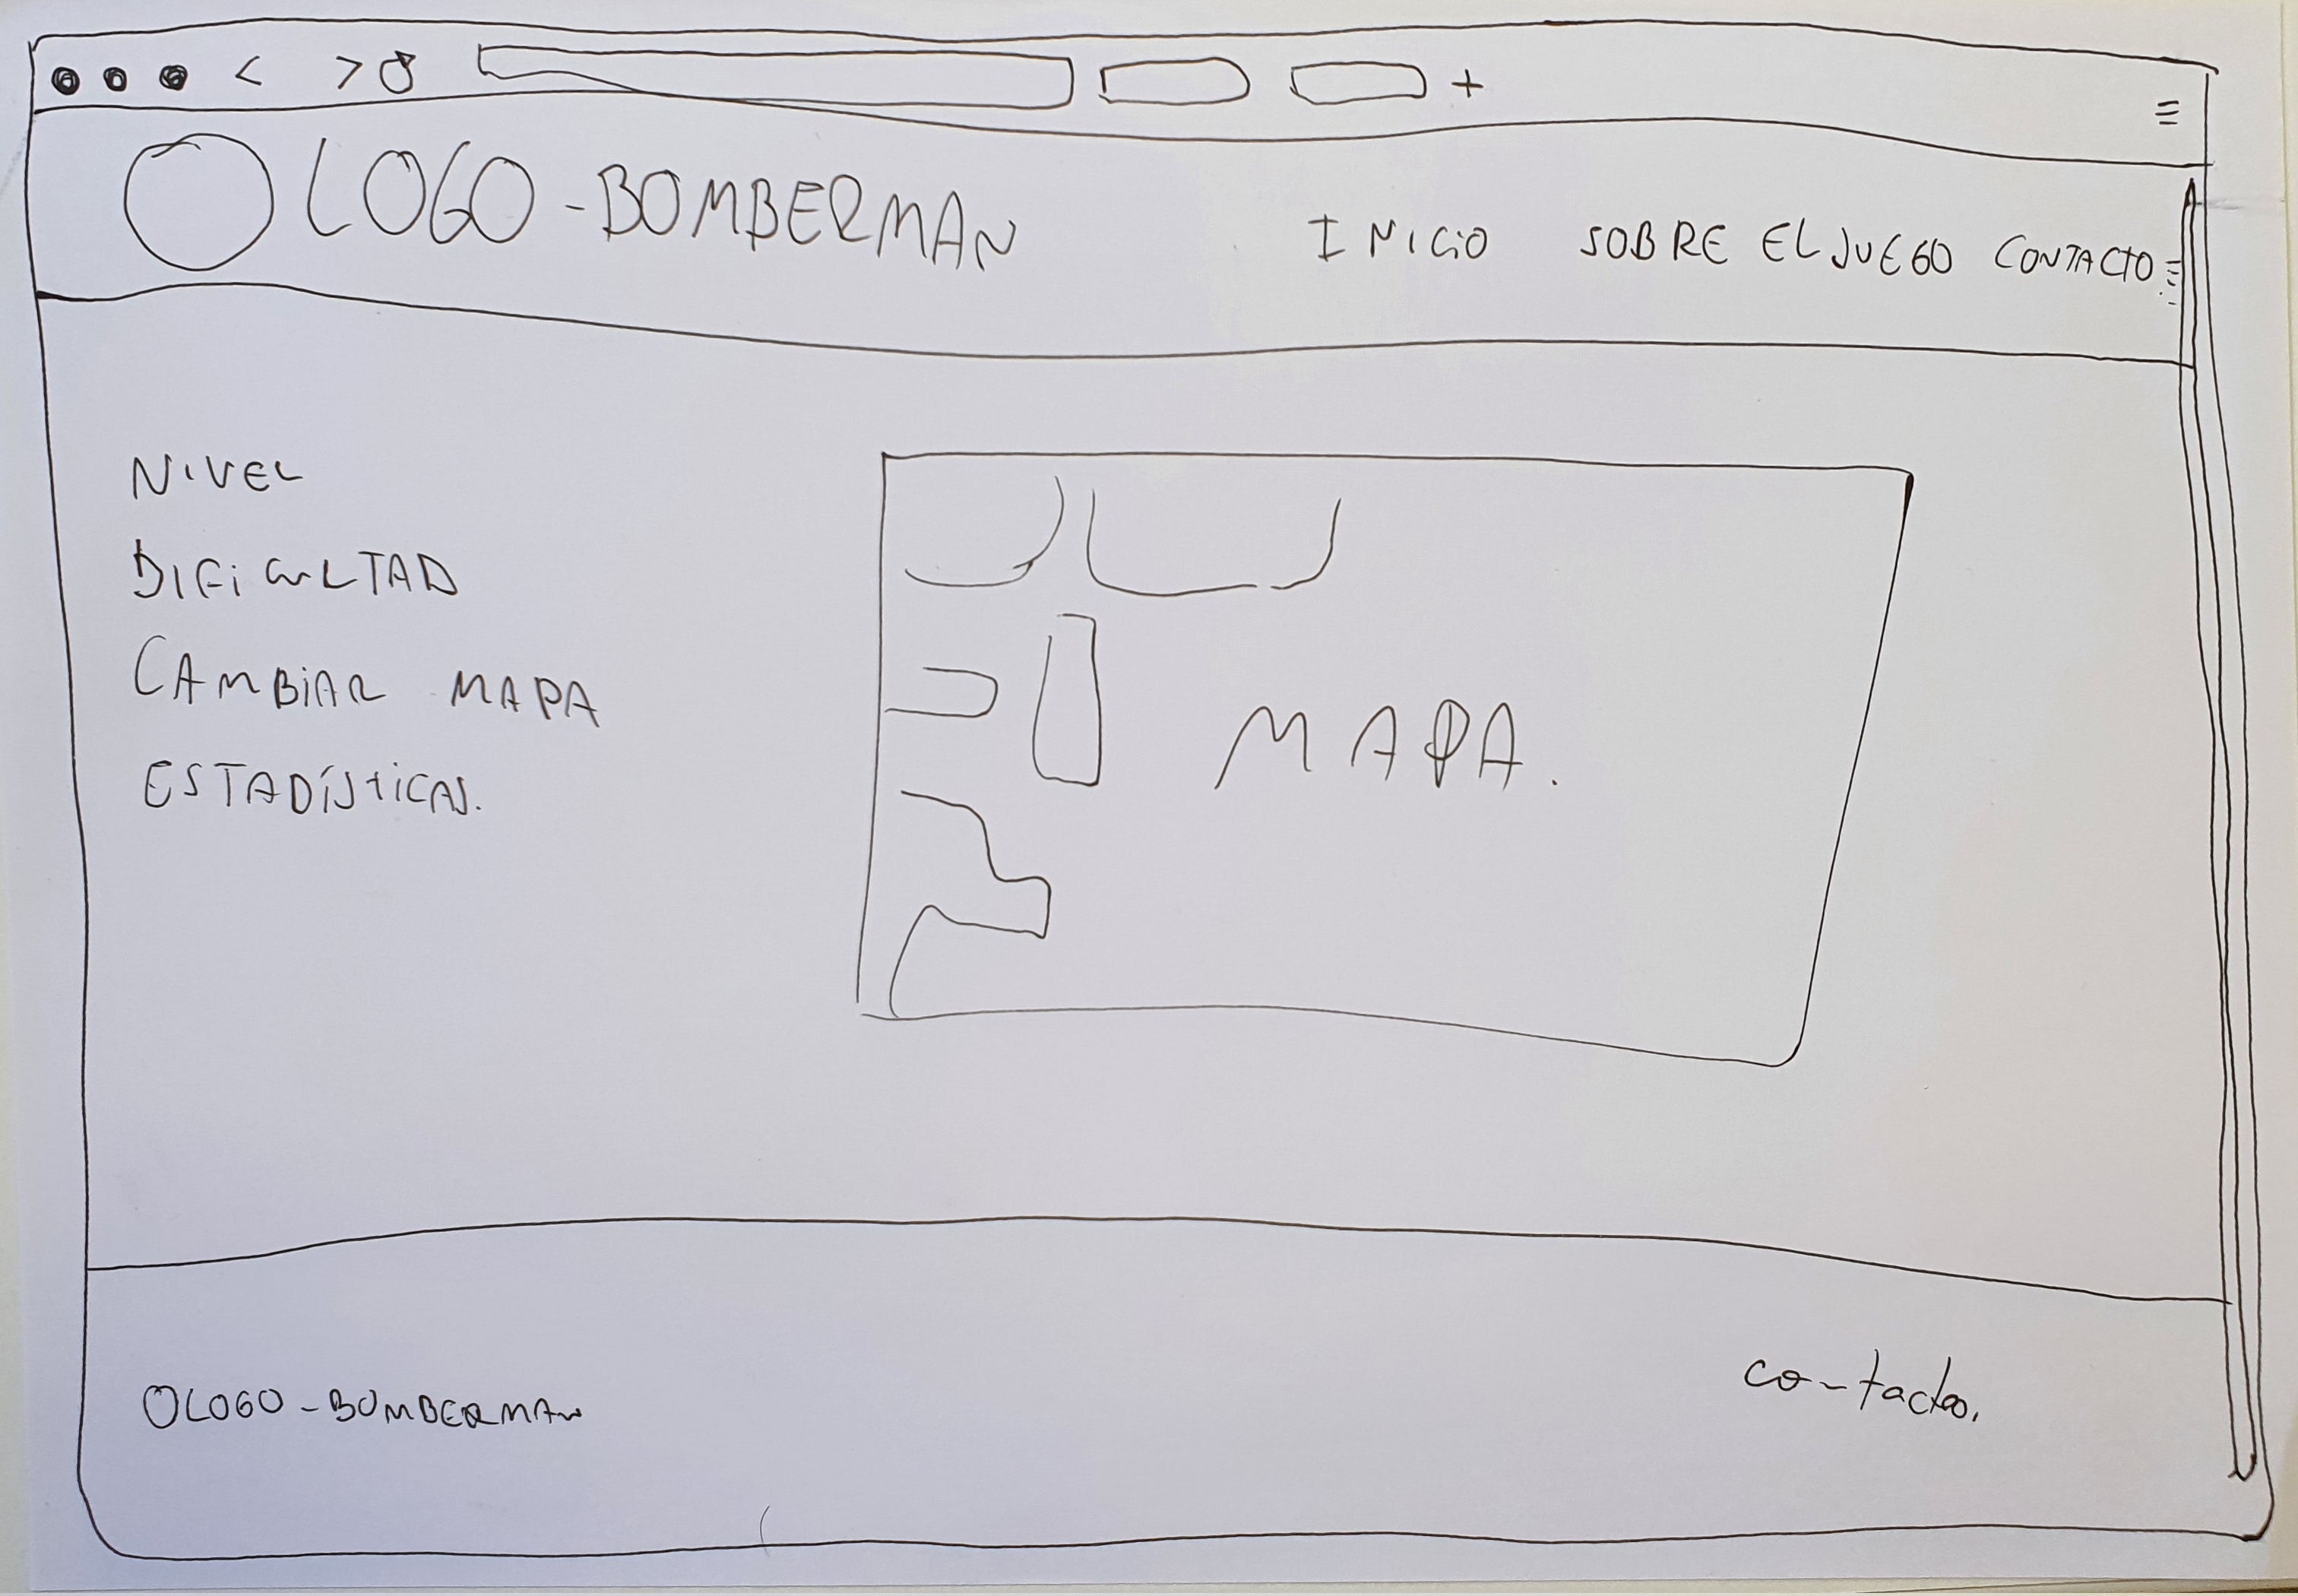 LOGO-BOMBERMAN
INICIO SOBRE EL JUEGO CONTACTO
NIVEL
DIFICULTAD
CAMBIAR MAPA
ESTADÍSTICAS.
MAPA.
LOGO-BOMBERMAN
contacto.